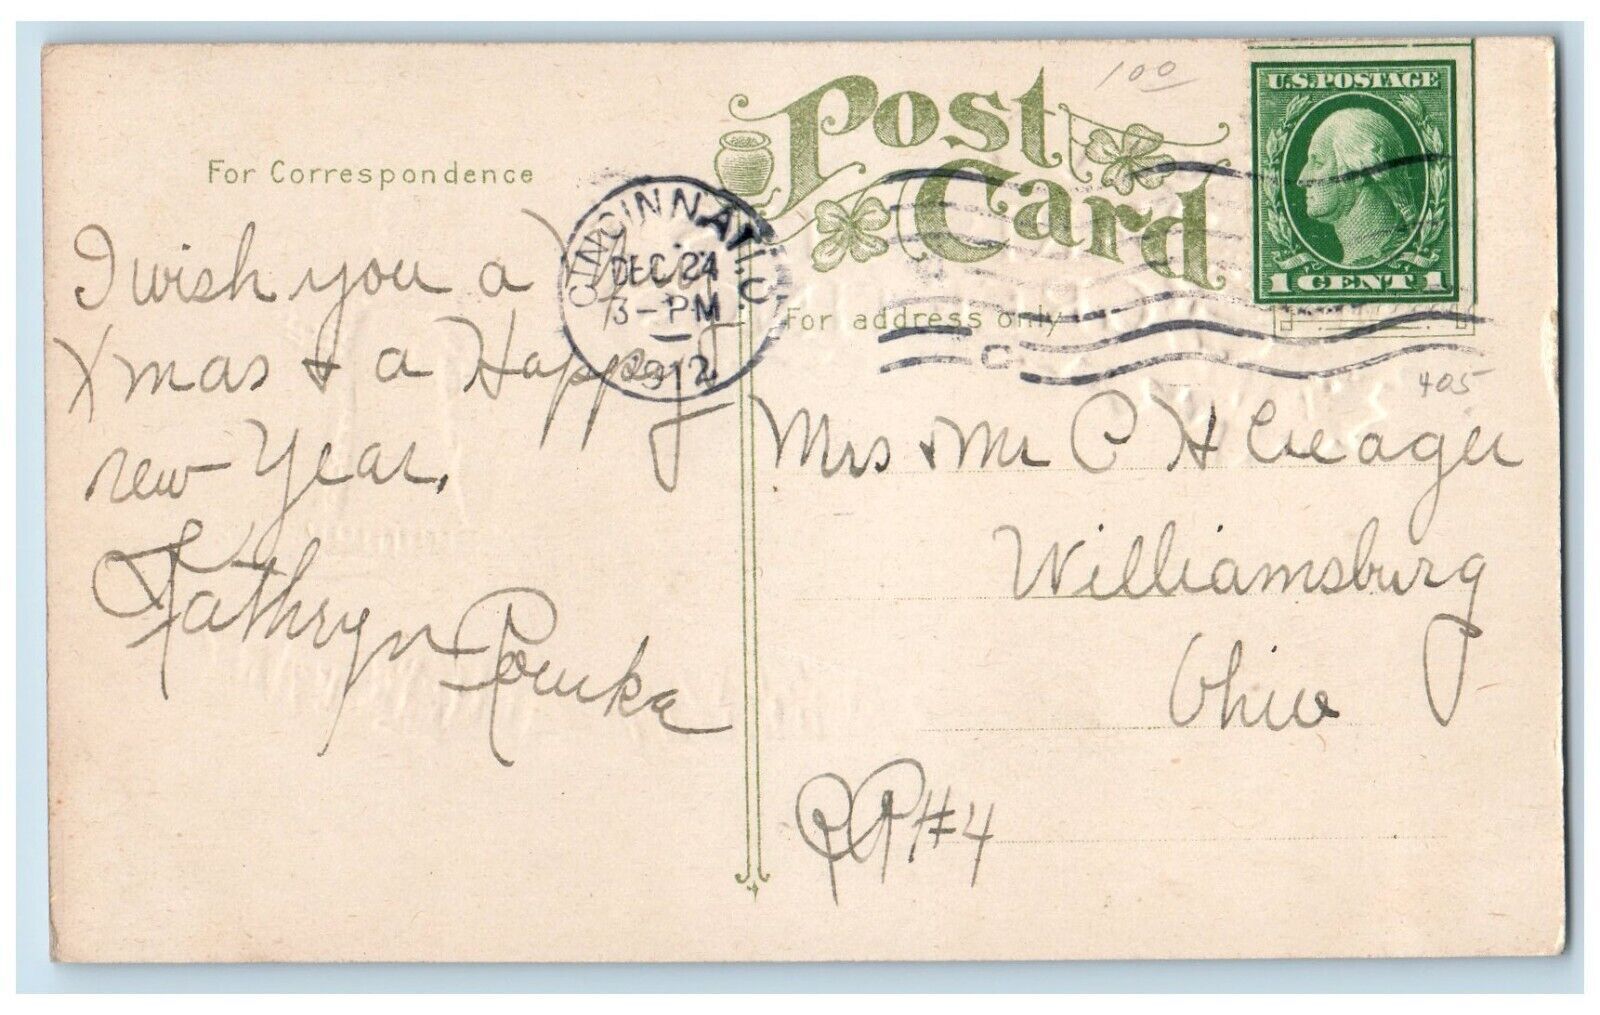 100
Post
Card
U.S. POSTAGE
1 CENT 1
For Correspondence
CINCINNATI, O.
DEC 24
3-PM
1912
C
For address only
405
I wish you a
Xmas & a Happy
new Year,
Kathryn
Mrs & Mr C H Creager
Williamsburg
Ohio
#4